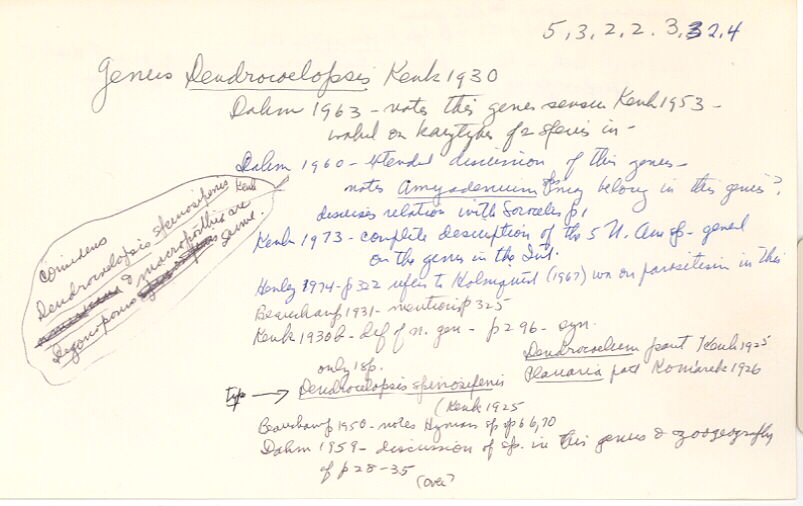 5, 3, 2, 2. 3, 3 2, 4
Genus Dendrocoelopsis Kenk 1930
Dahm 1963 - notes this genus sensu Kenk 1953 -
on karyotypes of 2 species in -
Dahm 1960 - extended discussion of this genus -
notes Amyadenium may belong in this genus?
discusses relation with Sorocelis p,
Kenk 1973 - complete description of the 5 N. Am sp - general
on the genus in the Int.
Henley 1974 - p 322 refers to Holmquist (1967) on parasitism in this
Beauchamp 1931 - mentions p 325
Kenk 1930b - def of n. gen - p 296 - syn.
Dendrocoelum part Kenk 1925
Planaria part Komarek 1926
only 1 sp.
type → Dendrocelopsis spinosipenis
(Kenk 1925
Beauchamp 1950 - notes Hyman sp p 66, 70
Dahm 1959 - discussion of sp. in this genus & zoogeography
of p 28-35
(over)
considers
Dendrocoelopsis spinosipenis Kenk
& macroporthis are
same.